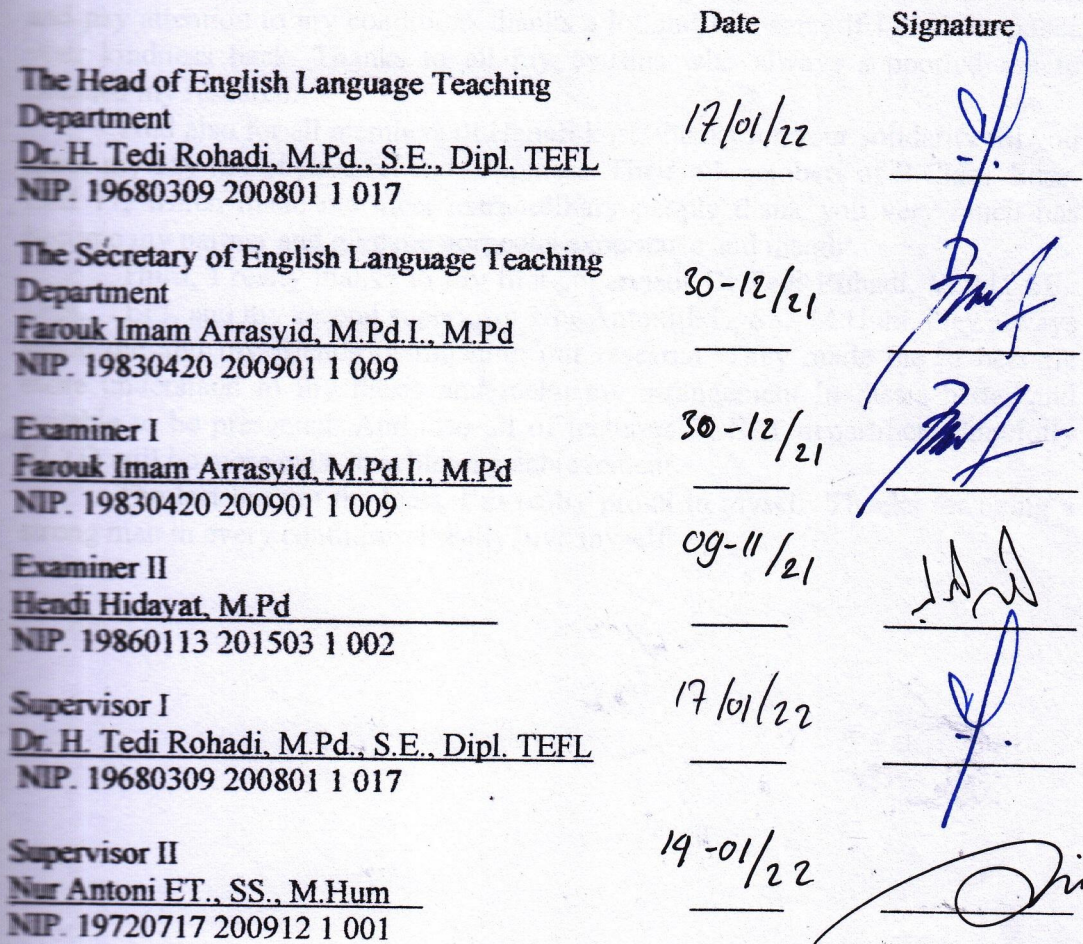 Date Signature
The Head of English Language Teaching
Department
17/01/22
Dr. H. Tedi Rohadi, M.Pd., S.E., Dipl. TEFL
NIP. 19680309 200801 1 017
The Secretary of English Language Teaching
Department
30-12/21
Farouk Imam Arrasyid, M.Pd.I., M.Pd
NIP. 19830420 200901 1 009
Examiner I
30-12/21
Farouk Imam Arrasyid, M.Pd.I., M.Pd
NIP. 19830420 200901 1 009
Examiner II
09-11/21
Hendi Hidayat, M.Pd
NIP. 19860113 201503 1 002
Supervisor I
17/01/22
Dr. H. Tedi Rohadi, M.Pd., S.E., Dipl. TEFL
NIP. 19680309 200801 1 017
Supervisor II
19-01/22
Nur Antoni ET., SS., M.Hum
NIP. 19720717 200912 1 001